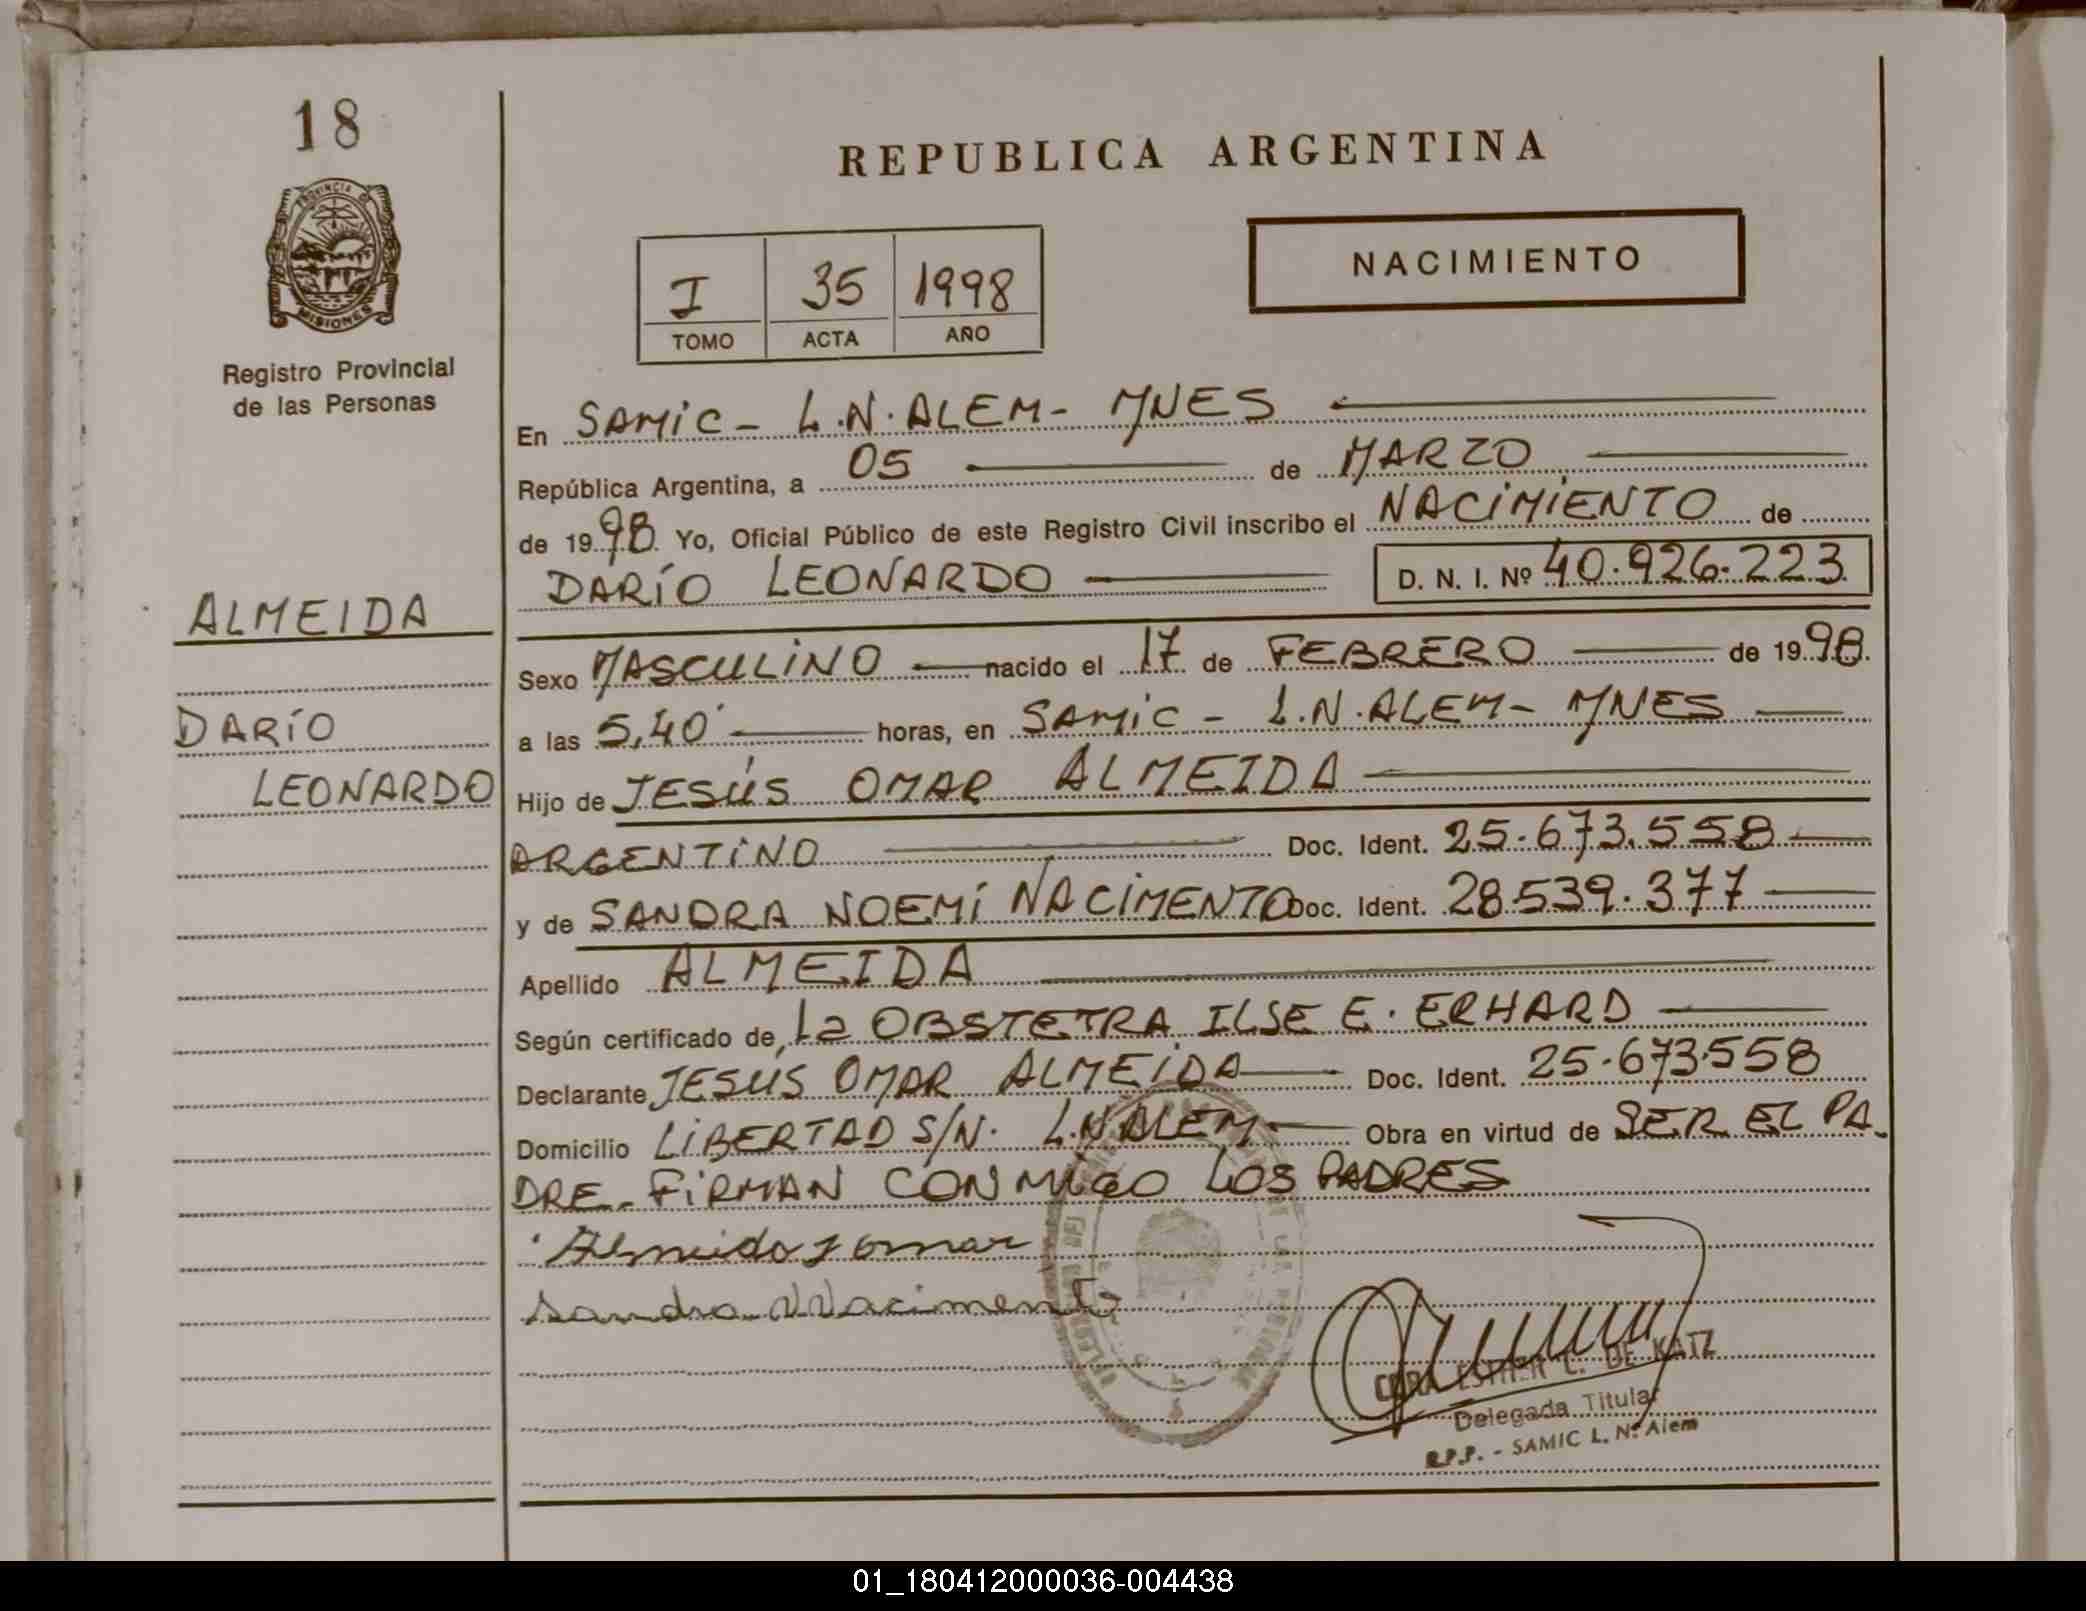 18
PROVINCIA DE
MISIONES
Registro Provincial
de las Personas
ALMEIDA
DARÍO
LEONARDO
REPUBLICA ARGENTINA
I 35 1998
TOMO ACTA AÑO
NACIMIENTO
En SAMIC - L.N. ALEM - MNES
República Argentina, a 05 de MARZO
de 1998 Yo, Oficial Público de este Registro Civil inscribo el NACIMIENTO de
DARÍO LEONARDO D. N. I. Nº 40.926.223
Sexo MASCULINO nacido el 17 de FEBRERO de 1998
a las 5,40' horas, en SAMIC - L.N. ALEM - MNES
Hijo de JESÚS OMAR ALMEIDA
ARGENTINO Doc. Ident. 25.673.558
y de SANDRA NOEMÍ NACIMENTO Doc. Ident. 28.539.377
Apellido ALMEIDA
Según certificado de, La OBSTETRA ILSE E. ERHARD
Declarante JESUS OMAR ALMEIDA Doc. Ident. 25.673.558
Domicilio LIBERTAD S/N. L.N ALEM Obra en virtud de SER EL PA-
DRE - FIRMAN CONMIGO LOS PADRES
Almeida J omar
Sandra N Nacimento
ESTHER C. DE KATZ
Delegada Titular
R.P.P. - SAMIC L. N. Alem
01_180412000036-004438